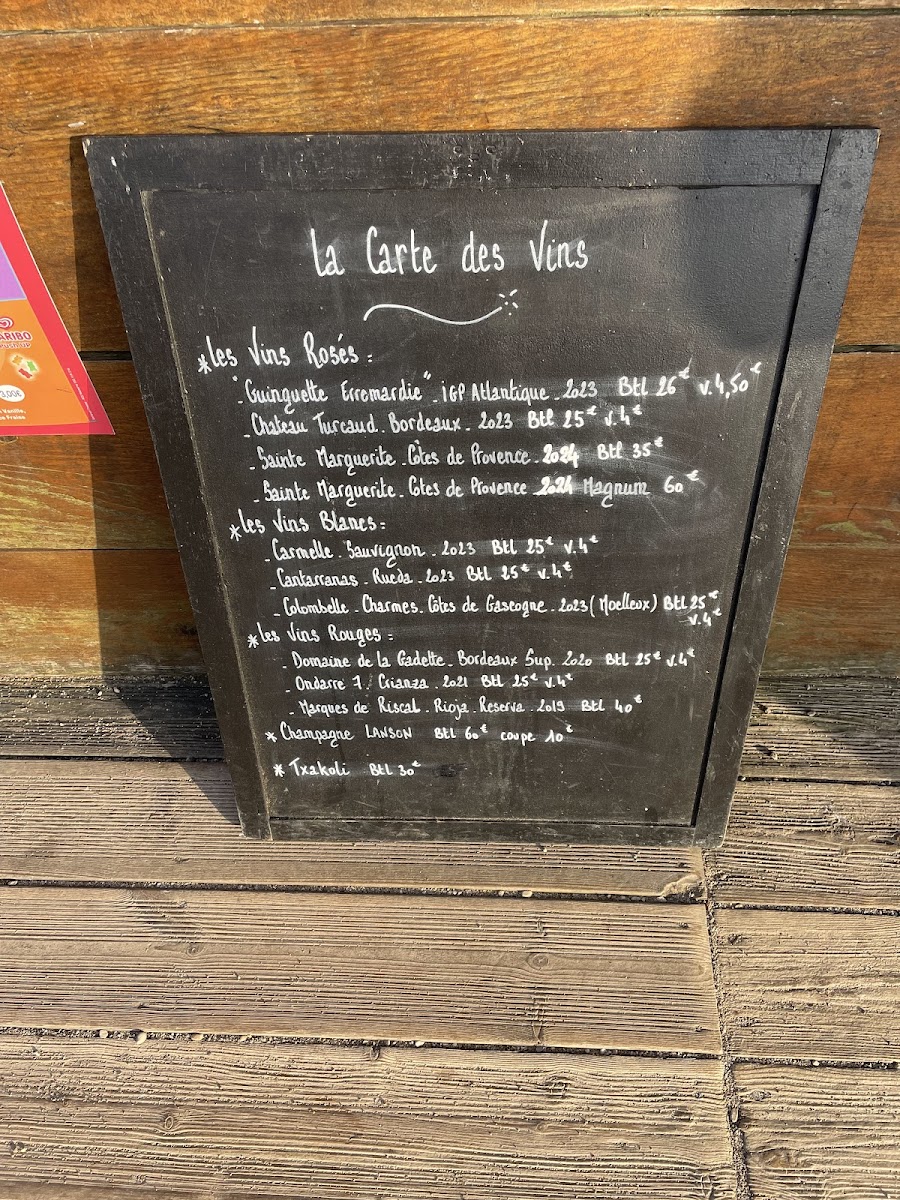 La Carte des Vins
*Les Vins Rosés :
"Guinguette Erromardie" - IGP Atlantique - 2023 Btl 26€ v.4,50€
- Chateau Turcaud - Bordeaux - 2023 Btl 25€ v.4€
- Sainte Marguerite - Côtes de Provence - 2024 Btl 35€
- Sainte Marguerite - Côtes de Provence 2024 Magnum 60€
*Les Vins Blancs :
- Carmelle - Sauvignon - 2023 Btl 25€ v.4€
- Cantarranas - Rueda - 2023 Btl 25€ v.4€
- Colombelle - Charmes - Côtes de Gascogne - 2023 (Moelleux) Btl 25€
v.4€
*Les Vins Rouges :
- Domaine de la Gadette - Bordeaux Sup. 2020 Btl 25€ v.4€
- Ondarre 7 / Crianza - 2021 Btl 25€ v.4€
- Marques de Riscal - Rioja - Reserva - 2019 Btl 40€
* Champagne LANSON Btl 60€ coupe 10€
* Txakoli Btl 30€
ARIBO
3,00€